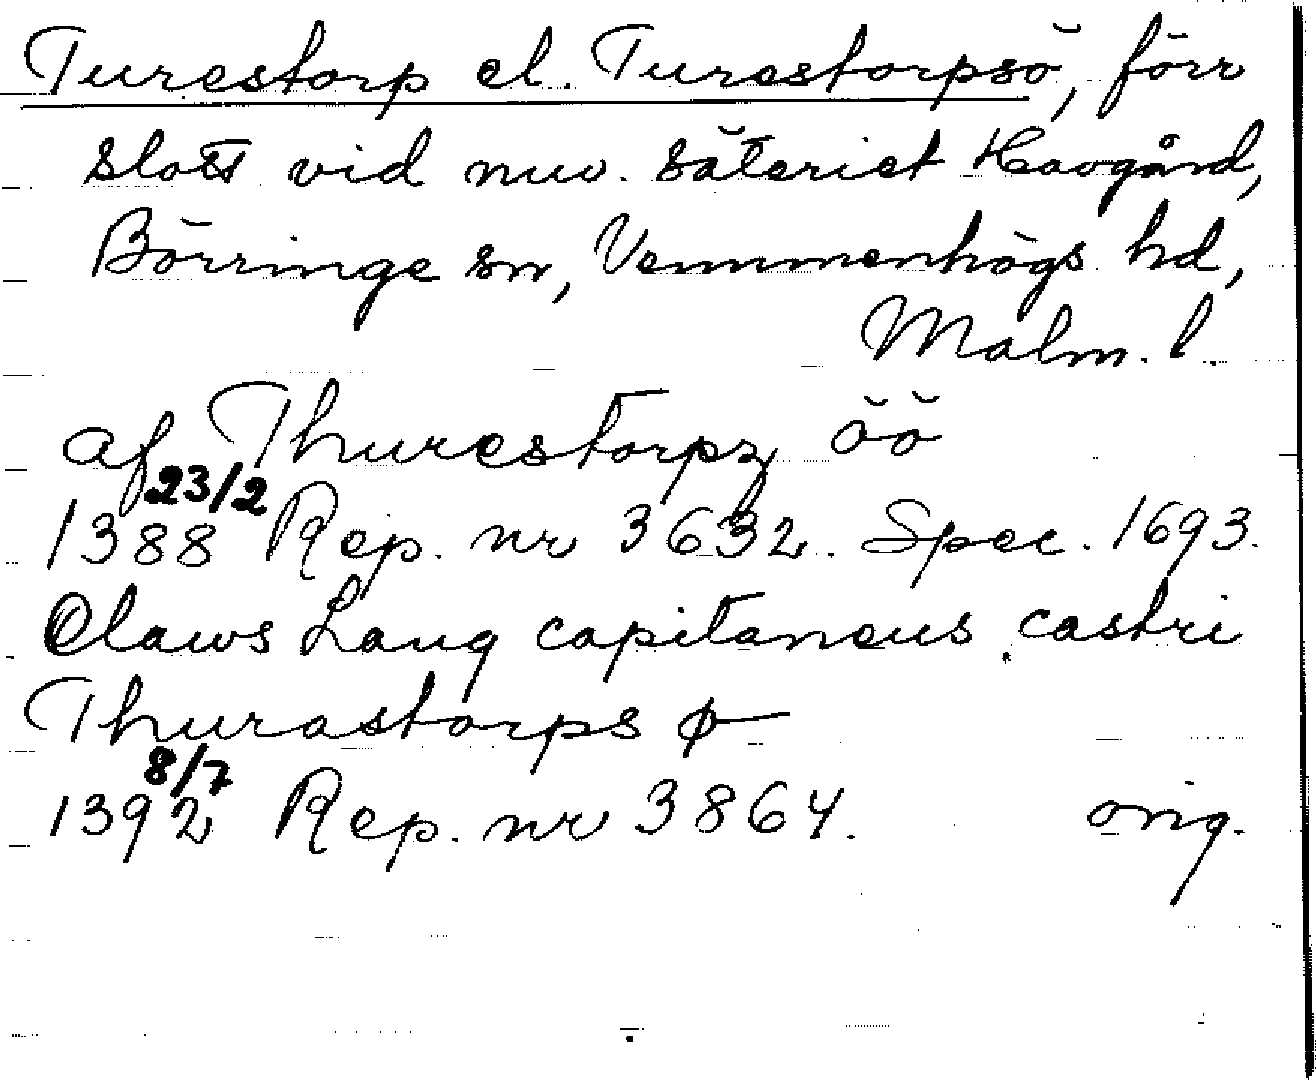 Turestorp el. Turestorpsö, förr
slott vid nuv. säteriet Havgård,
Börringe sn, Vemmenhögs hd,
Malm. l.
af Thurestorpz öö
23/2
1388 Rep. nr 3632. Spec. 1693.
Claws Lang capitaneus castri
Thurastorps ø
8/7
1392 Rep. nr 3864. orig.